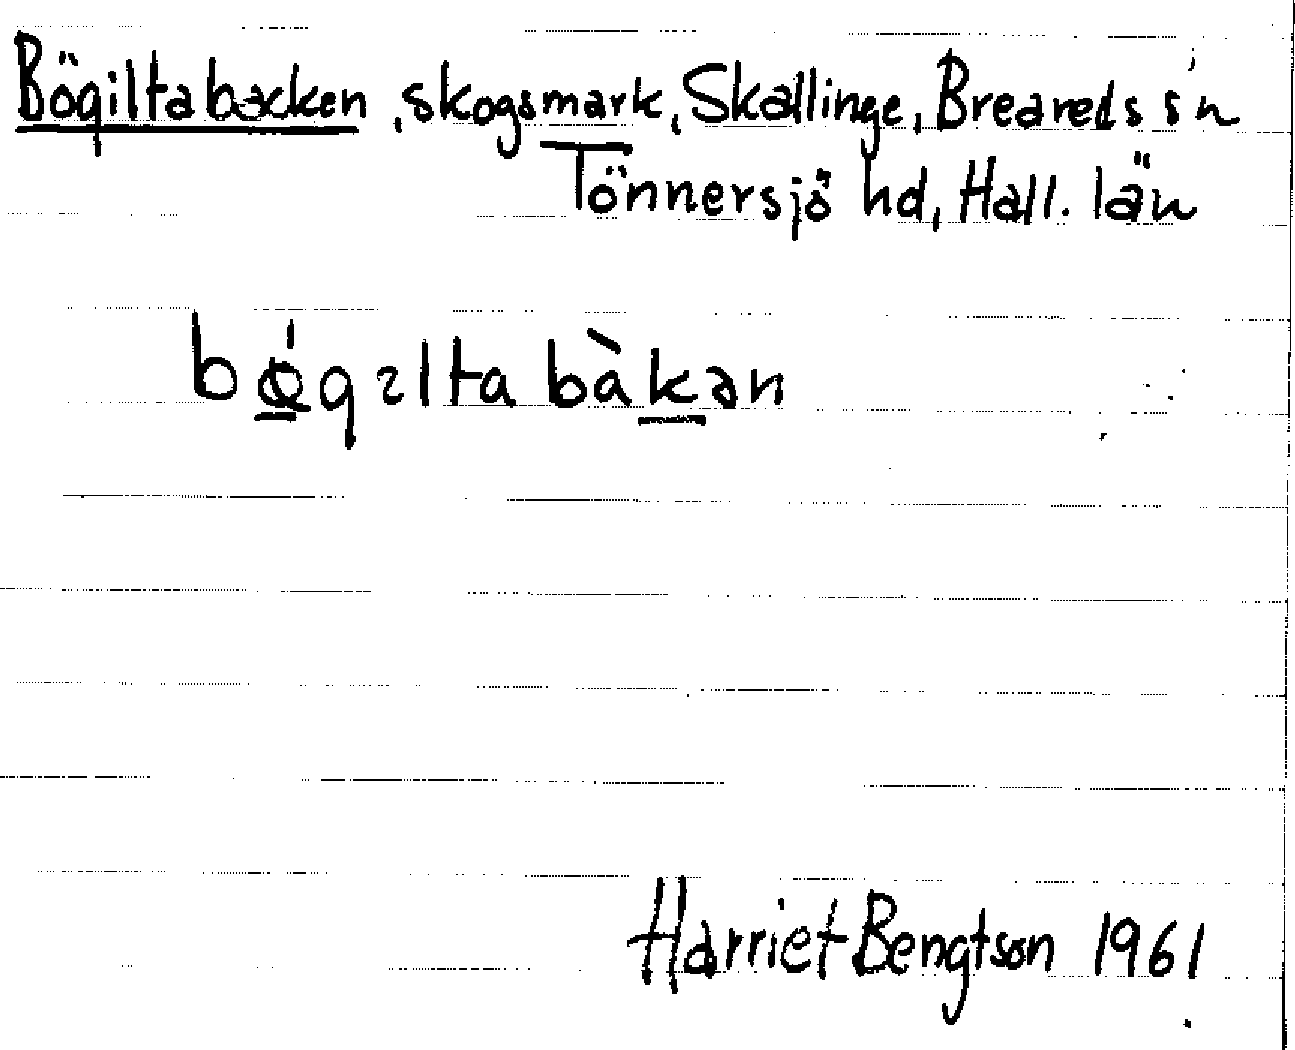 Bögiltabacken, skogsmark, Skällinge, Breareds s'n
Tönnersjö hd, Hall. län
bǿgɪltabàkən
Harriet Bengtson 1961